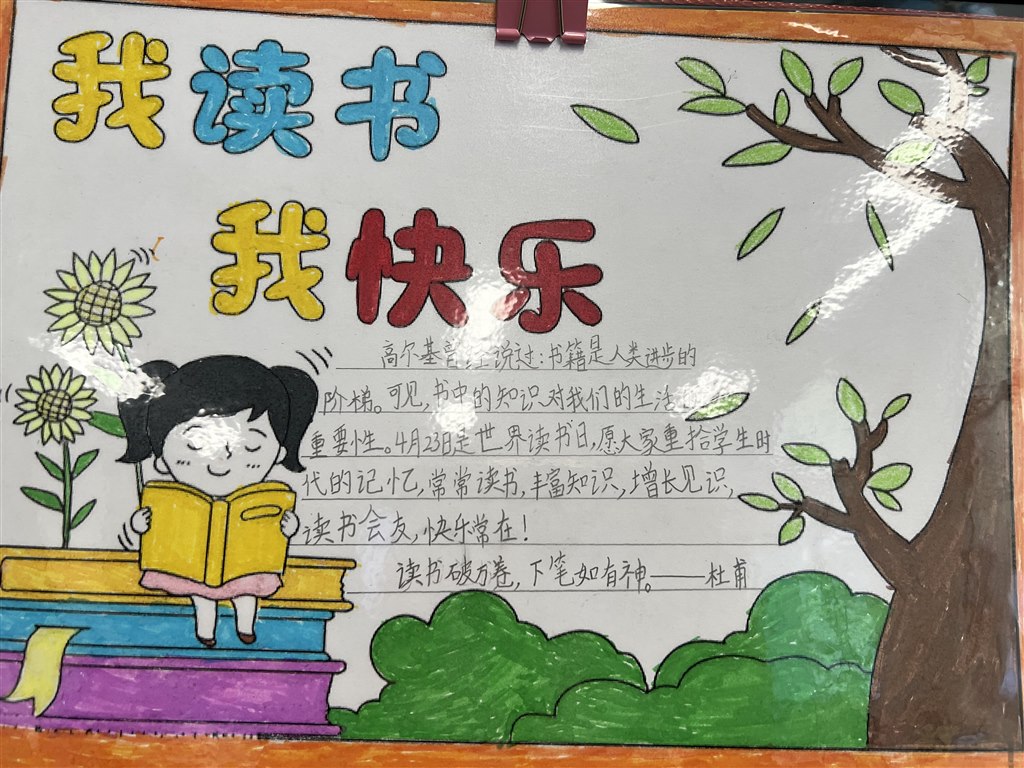 我读书
我快乐
高尔基 说过:书籍是人类进步的
阶梯。可见,书中的知识对我们的生活
重要性。4月23日是世界读书日,愿大家重拾学生时
代的记忆,常常读书,丰富知识,增长见识,
读书会友,快乐常在!
读书破万卷,下笔如有神。——杜甫